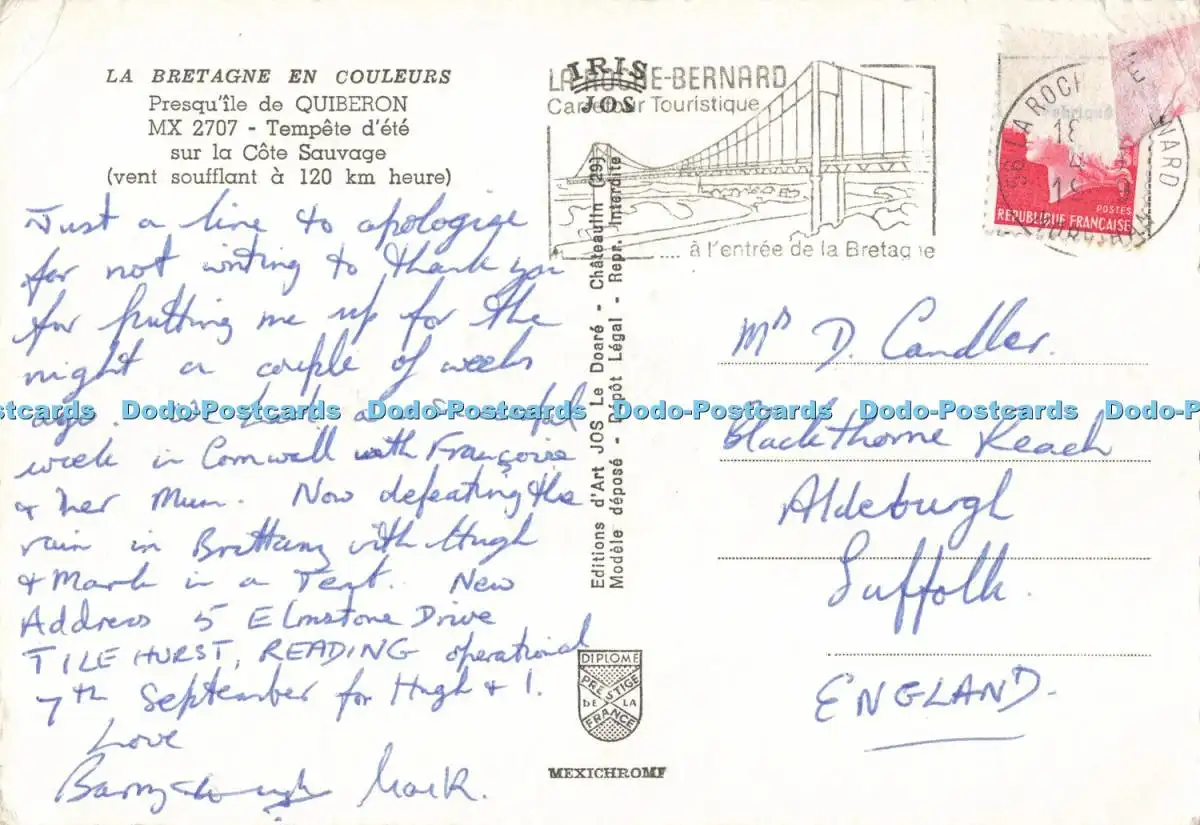 LA BRETAGNE EN COULEURS
Presqu'île de QUIBERON
MX 2707 - Tempête d'été
sur la Côte Sauvage
(vent soufflant à 120 km heure)
Just a line to apologise
for not writing to thank you
for putting me up for the
night a couple of weeks
ago. We had a
week in Cornwall with Françoise
& her Mum. Now defeating the
rain in Brittany with Hugh
& Mark in a Tent. New
Address 5 Elmstone Drive
TILEHURST, READING operational
7th September for Hugh & I.
Love
Barry Hugh Mark.
IRIS
JOS
Editions d'Art JOS Le Doaré - Châteaulin (29)
Modèle déposé - Dépôt Légal - Repr. Interdite
DIPLOME
PRESTIGE
DE LA
FRANCE
MEXICHROME
LA ROCHE-BERNARD
Carrefour Touristique
.... à l'entrée de la Bretagne
POSTES
REPUBLIQUE FRANÇAISE
Mrs D. Candler.
Blackthorne Reach
Aldeburgh
Suffolk.
ENGLAND.
Dodo-Postcards Dodo-Postcards Dodo-Postcards Dodo-Postcards